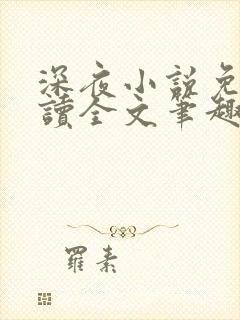 深夜小說免
讀全文筆趣
羅素